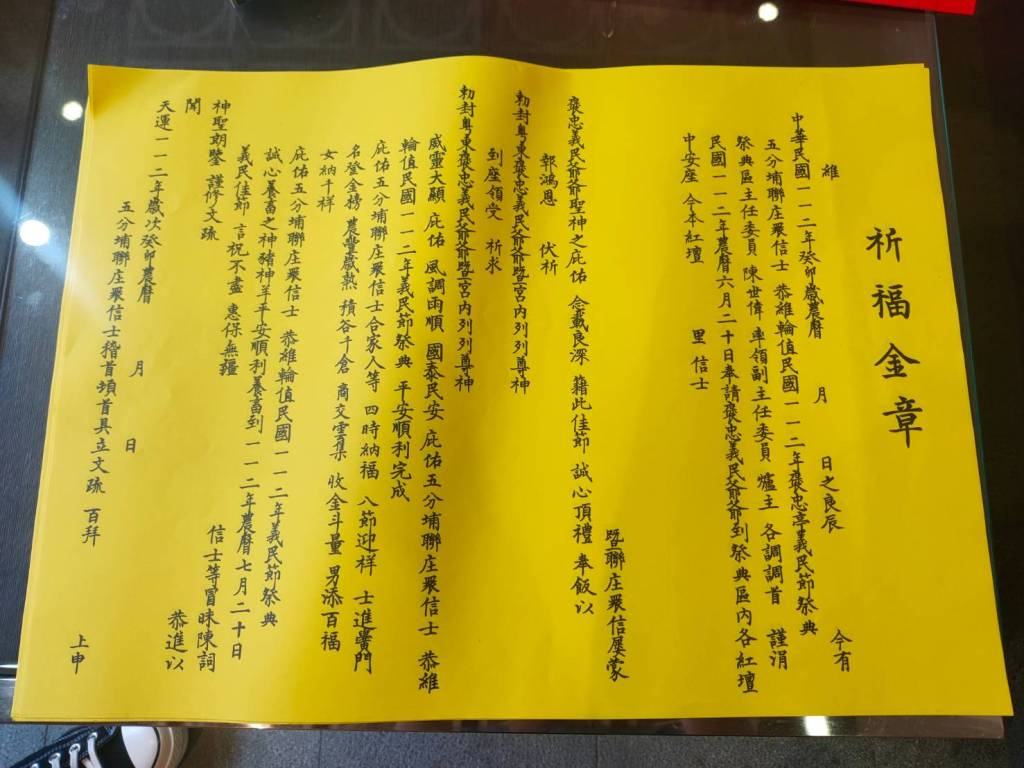 祈福金章
維
中華民國一一二年癸卯歲農曆 月 日之良辰 今有
五分埔聯庄眾信士 恭維輪值民國一一二年褒忠亭義民節祭典
祭典區主任委員 陳世偉 率領副主任委員 爐主 各調調首 謹涓
民國一一二年農曆六月二十日奉請褒忠義民爺爺到祭典區內各紅壇
中安座 今本紅壇 里 信士
暨聯庄眾信屢蒙
褒忠義民爺爺聖神之庇佑 念載良深 藉此佳節 誠心頂禮 奉飯以
報鴻恩 伏祈
勅封粵東褒忠義民爺爺暨宮內列列尊神
到座領受 祈求
勅封粵東褒忠義民爺爺暨宮內列列尊神
威靈大顯 庇佑 風調雨順 國泰民安 庇佑五分埔聯庄眾信士 恭維
輪值民國一一二年義民節祭典 平安順利完成
庇佑五分埔聯庄眾信士合家人等 四時納福 八節迎祥 士進黌門
名登金榜 農豐歲熟 積谷千倉 商交雲集 收金斗量 男添百福
女納千祥
庇佑五分埔聯庄眾信士 恭維輪值民國一一二年義民節祭典
誠心養畜之神豬神羊平安順利養畜到一一二年農曆七月二十日
義民佳節 言祝不盡 惠保無疆
信士等冒昧陳詞
神聖朗鑒 謹修文疏 恭進以
聞
天運一一二年歲次癸卯農曆 月 日
五分埔聯庄眾信士稽首頓首具立文疏 百拜
上申